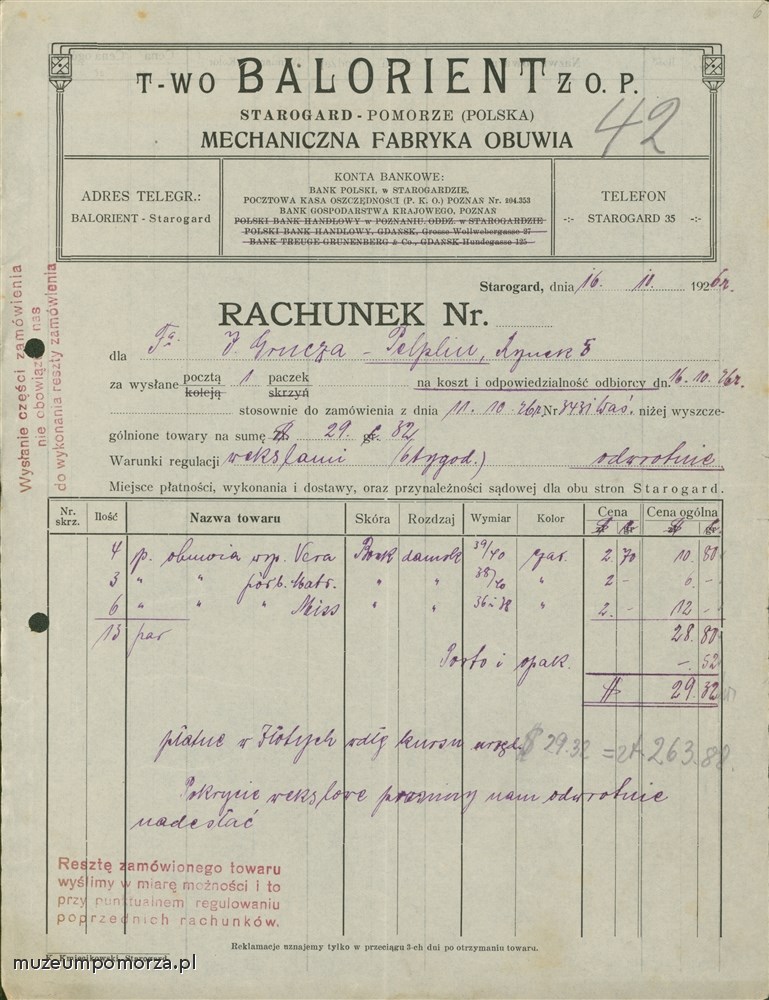 6
T-WO BALORIENT Z O. P.
STAROGARD - POMORZE (POLSKA)
MECHANICZNA FABRYKA OBUWIA
42
ADRES TELEGR.:
BALORIENT - Starogard
KONTA BANKOWE:
BANK POLSKI, w STAROGARDZIE,
POCZTOWA KASA OSZCZĘDNOŚCI (P. K. O.) POZNAŃ Nr. 204.353
BANK GOSPODARSTWA KRAJOWEGO, POZNAŃ
POLSKI BANK HANDLOWY w POZNANIU, ODDZ. w STAROGARDZIE
POLSKI BANK HANDLOWY, GDAŃSK, Grosse Wollwebergasse 27
BANK TREUGE GRUNENBERG & Co., GDAŃSK Hundegasse 125
TELEFON
-:- STAROGARD 35 -:-
Starogard, dnia 16. 10. 1926r.
RACHUNEK Nr.
dla Fa. J. Grucza - Pelplin, Rynek 5
za wysłane pocztą koleją 1 paczek skrzyń na koszt i odpowiedzialność odbiorcy dn. 16. 10. 26r.
stosownie do zamówienia z dnia 11. 10. 26r. Nr 3431 Waś. niżej wyszcze-
gólnione towary na sumę $ 29. gr. 32/
Warunki regulacji wekslami (6 tygod.) odwrotnie
Miejsce płatności, wykonania i dostawy, oraz przynależności sądowej dla obu stron Starogard.
Wysłanie części zamówienia
nie obowiązuje nas
do wykonania reszty zamówienia
Nr. skrz. Ilość Nazwa towaru Skóra Rozdzaj Wymiar Kolor Cena Cena ogólna
4 p. obuwia wyp. Vera damsk 39/40 czar. 2. 70 10. 80
3 " " " " 38/40 " 2 - 6. -
6 " " " " " 36 i 38 " 2. - 12 -
13 par 28. 80
Porto i opak. -. 52
$ 29. 32
płatne w Złotych wdłg kursu urzęd. $ 29.32 = zł 263.88.
Pokrycie wekslowe prosimy nam odwrotnie
nadesłać
Resztę zamówionego towaru
wyślimy w miarę możności i to
przy punktualnem regulowaniu
poprzednich rachunków.
Reklamacje uznajemy tylko w przeciągu 3-ch dni po otrzymaniu towaru.
Starogard
muzeumpomorza.pl